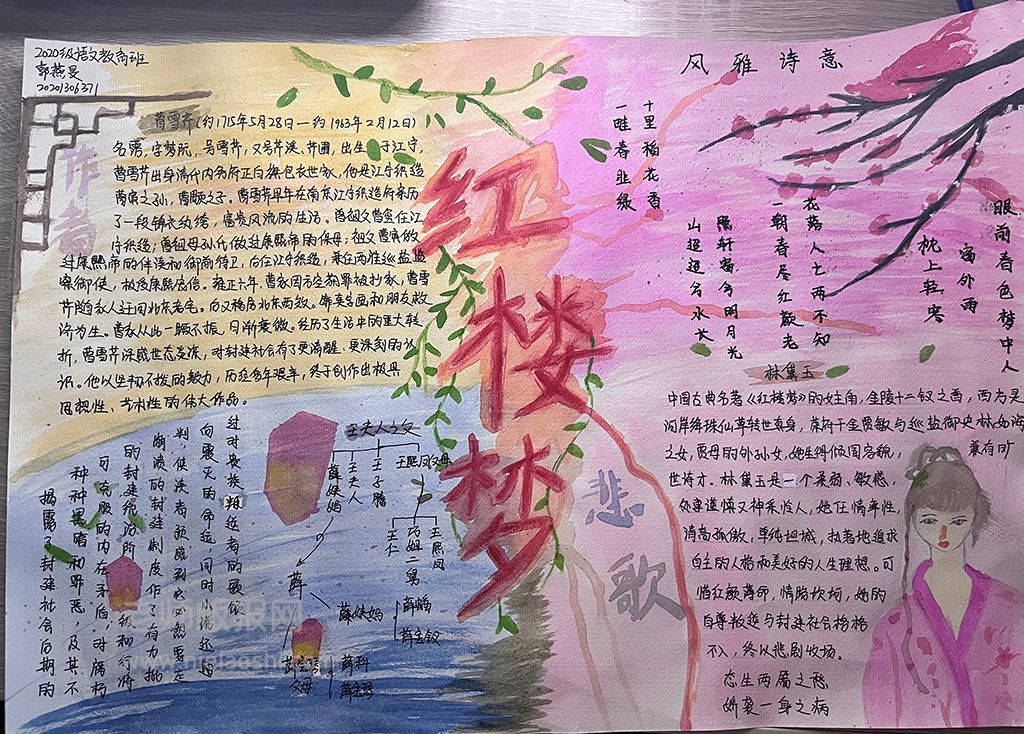 2020级语文教育班
郭燕旻
20201306371
作者
曹雪芹(约1715年5月28日—约1963年2月12日)
名霑,字梦阮,号雪芹,又号芹溪、芹圃,出生于江宁,
曹雪芹出身清代内务府正白旗包衣世家,他是江宁织造
曹寅之孙,曹颙之子。曹雪芹早年在南京江宁织造府亲历
了一段锦衣纨绔,富贵风流的生活。曾祖父曹玺任江
宁织造;曾祖母孙氏做过康熙帝的保母;祖父曹寅做
过康熙帝的伴读和御前侍卫,后任江宁织造,兼任两淮巡盐监
察御使,极受康熙宠信。雍正六年,曹家因亏空获罪被抄家,曹雪
芹随家人迁回北京老宅。后又移居北京西郊,靠卖字画和朋友救
济为生。曹家从此一蹶不振,日渐衰微。经历了生活中的重大转
折,曹雪芹深感世态炎凉,对封建社会有了更清醒、更深刻的认
识。他以坚韧不拔的毅力,历经多年艰辛,终于创作出极具
思想性、艺术性的伟大作品。
红楼梦
风雅诗意
十里稻花香
一畦春韭绿
花落人亡两不知
一朝春尽红颜老
隔轩窗兮明月光
山迢迢兮水长
眼前春色梦中人
窗外雨
枕上轻寒
林黛玉
中国古典名著《红楼梦》的女主角,金陵十二钗之首,西方灵
河岸绛珠仙草转世真身,荣府千金贾敏与巡盐御史林如海
之女,贾母的外孙女,她生得倾国容貌,兼有旷
世诗才。林黛玉是一个柔弱、敏感,
处事谨慎又神采怡人,她任情率性,
清高孤傲,单纯坦诚,执着地追求
自主的人格和美好的人生理想。可
惜红颜薄命,情路坎坷,她的
自尊敏感与封建社会格格
不入,终以悲剧收场。
态生两靥之愁
娇袭一身之病
悲歌
王夫人之父
王熙凤父母
王子腾
王夫人
薛姨妈
王熙凤
王仁
薛
薛姨妈
薛蟠
薛宝钗
薛科
薛宝琴
父母
向覆灭的命运,同时小说还指
判,使读者预感到它必然要走
崩溃的封建制度作了有力的批
的封建统治阶级和行将
可克服的内在矛盾,对腐朽
种种黑暗和罪恶,及其不
揭露了封建社会后期的